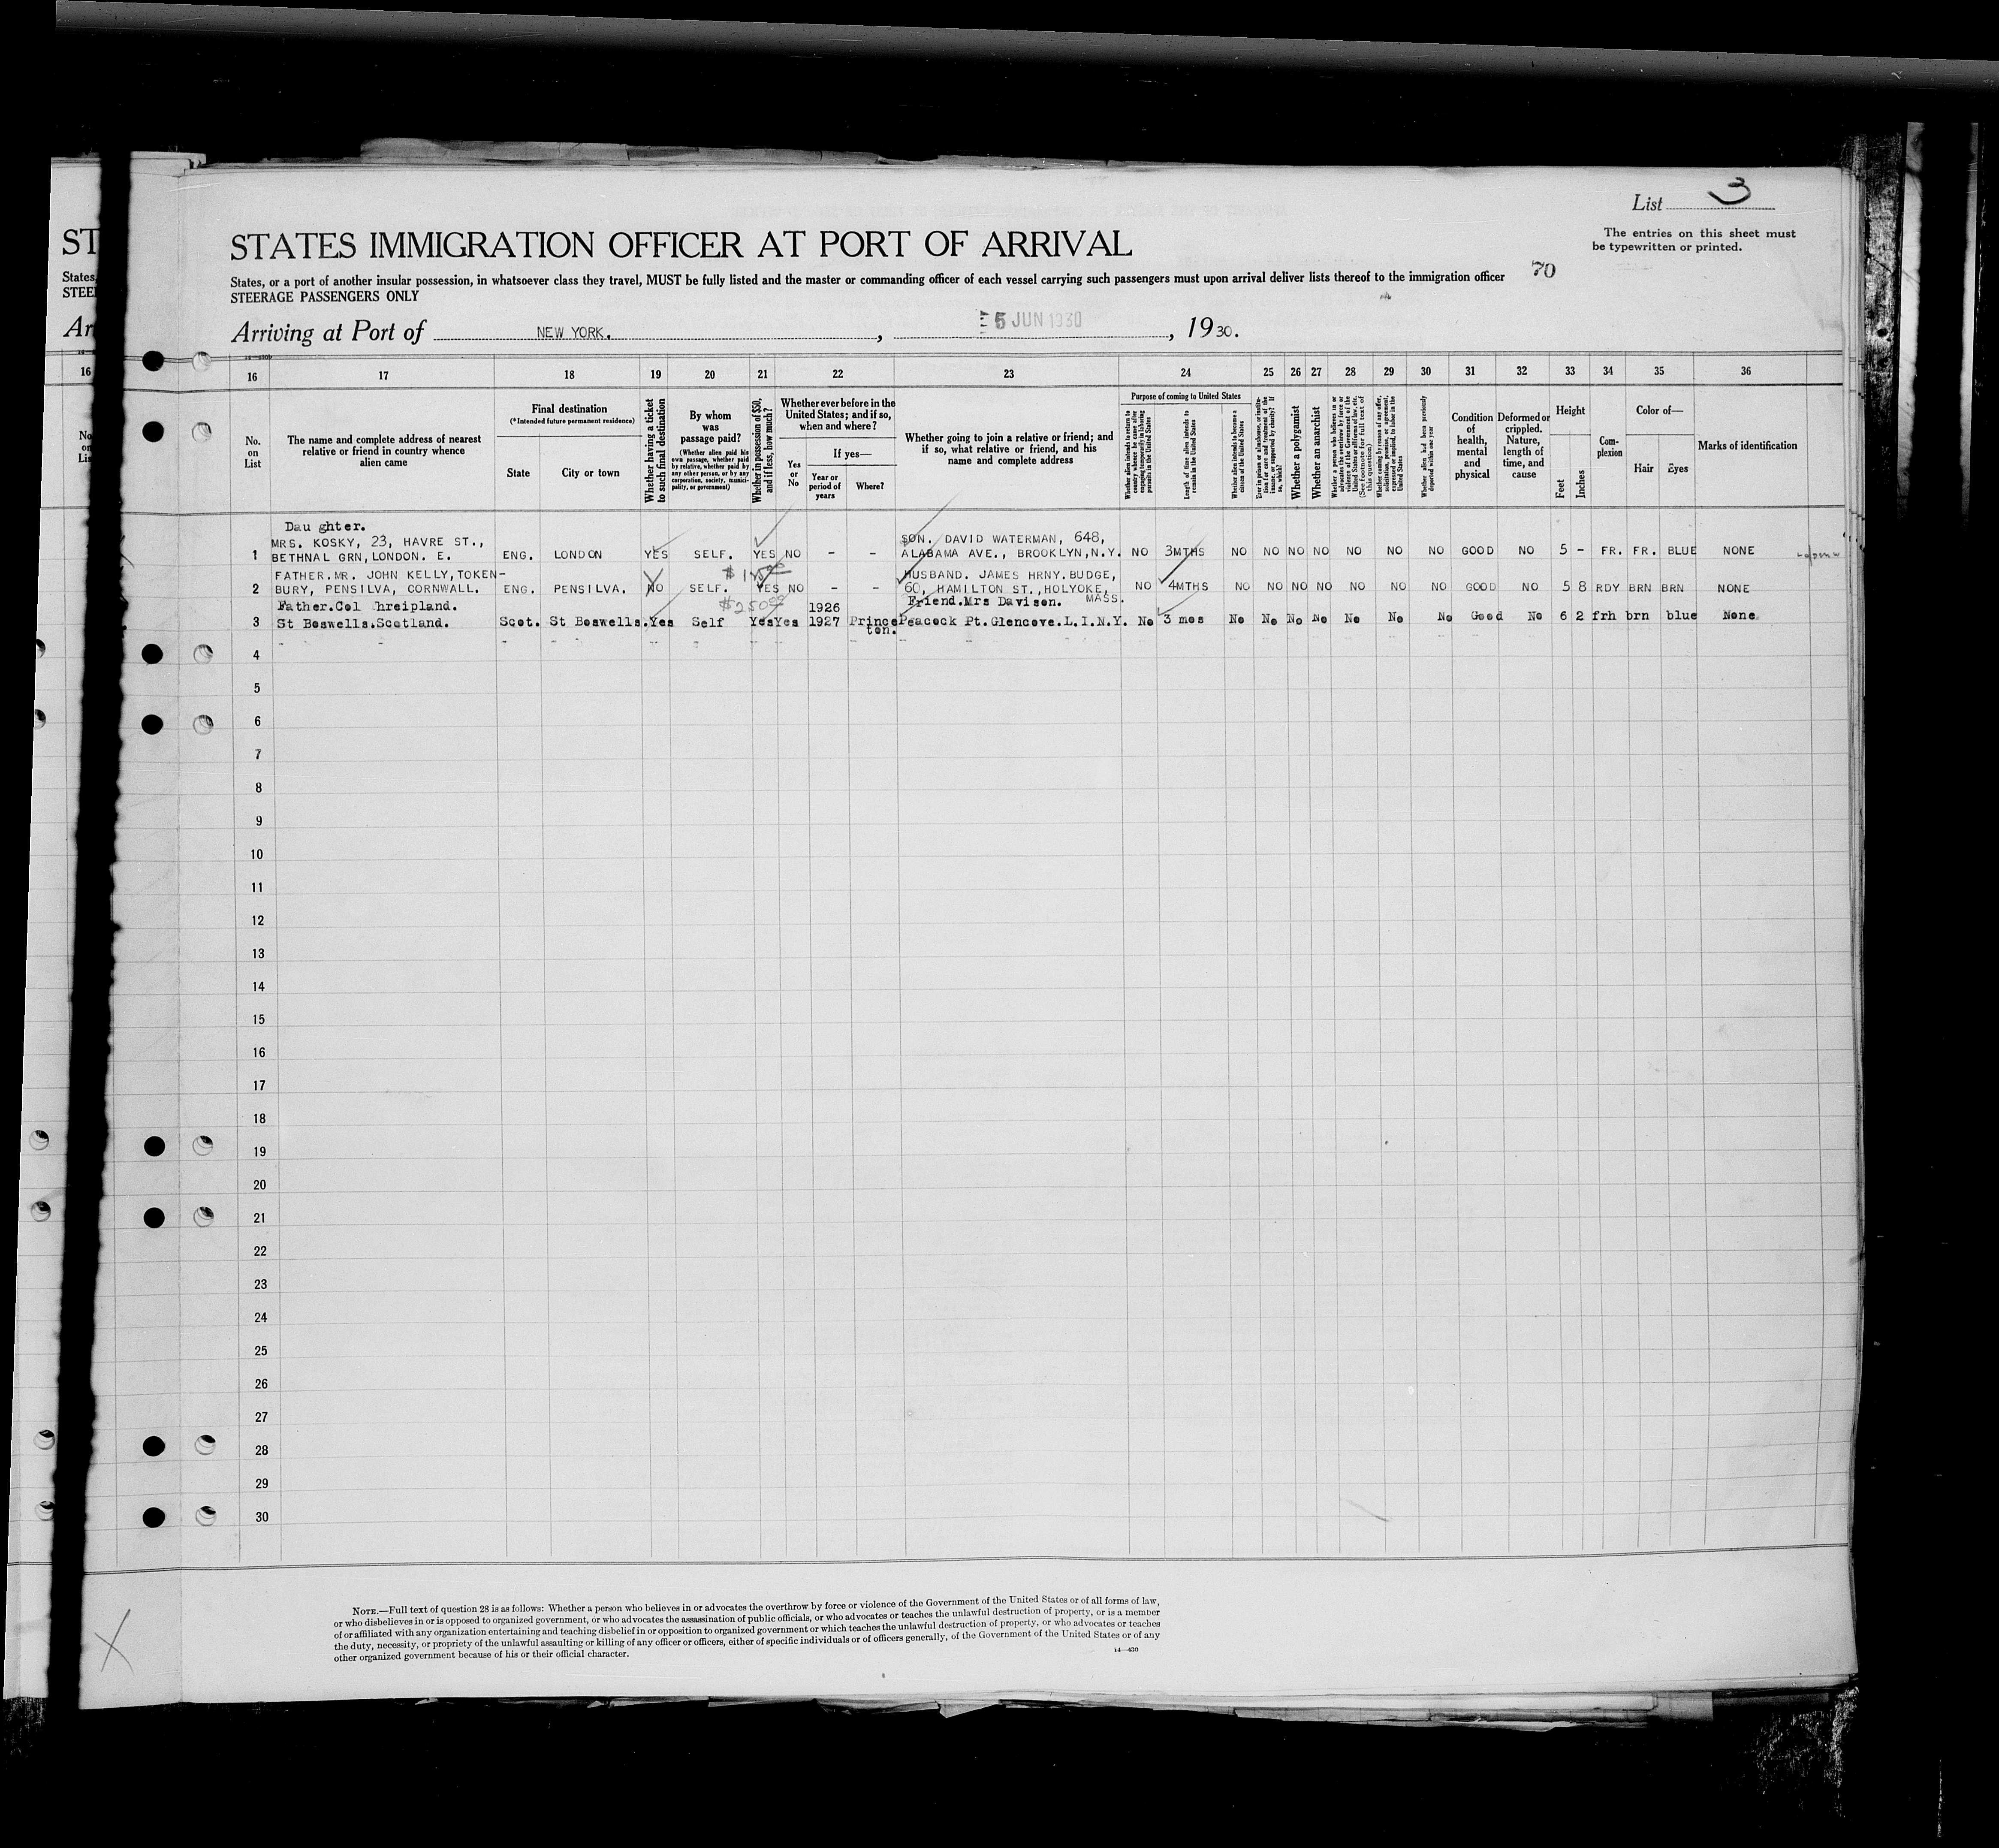 List 3
The entries on this sheet must
be typewritten or printed.
STATES IMMIGRATION OFFICER AT PORT OF ARRIVAL
States, or a port of another insular possession, in whatsoever class they travel, MUST be fully listed and the master or commanding officer of each vessel carrying such passengers must upon arrival deliver lists thereof to the immigration officer
70
STEERAGE PASSENGERS ONLY
Arriving at Port of NEW YORK. , 5 JUN 1930 , 1930.
16 17 18 19 20 21 22 23 24 25 26 27 28 29 30 31 32 33 34 35 36
No. on List
The name and complete address of nearest relative or friend in country whence alien came
Final destination
(*Intended future permanent residence)
State
City or town
Whether having a ticket to such final destination
By whom was passage paid?
(Whether alien paid his own passage, whether paid by relative, whether paid by any other person, or by any corporation, society, municipality, or government)
Whether in possession of $50, and if less, how much?
Whether ever before in the United States; and if so, when and where?
Yes or No
If yes—
Year or period of years
Where?
Whether going to join a relative or friend; and if so, what relative or friend, and his name and complete address
Purpose of coming to United States
Whether alien intends to return to country whence he came after engaging temporarily in laboring pursuits in the United States
Length of time alien intends to remain in the United States
Whether alien intends to become a citizen of the United States
Ever in prison or almshouse, or institution for care and treatment of the insane, or supported by charity? If so, which?
Whether a polygamist
Whether an anarchist
Whether a person who believes in or advocates the overthrow by force or violence of the Government of the United States or all forms of law, etc. (See footnote for full text of this question)
Whether coming by reason of any offer, solicitation, promise, or agreement, expressed or implied, to labor in the United States
Whether alien had been previously deported within one year
Condition of health, mental and physical
Deformed or crippled. Nature, length of time, and cause
Height
Feet
Inches
Complexion
Color of—
Hair
Eyes
Marks of identification
Dau ghter.
MRS. KOSKY, 23, HAVRE ST., SON. DAVID WATERMAN, 648,
1 BETHNAL GRN, LONDON. E. ENG. LONDON YES SELF. YES NO – – ALABAMA AVE., BROOKLYN, N.Y. NO 3MTHS NO NO NO NO NO NO NO GOOD NO 5 – FR. FR. BLUE NONE
FATHER. MR. JOHN KELLY, TOKEN- HUSBAND. JAMES HRNY. BUDGE,
2 BURY, PENSILVA, CORNWALL. ENG. PENSILVA. NO SELF. YES NO – – 60, HAMILTON ST., HOLYOKE, MASS. NO 4MTHS NO NO NO NO NO NO NO GOOD NO 5 8 RDY BRN BRN NONE
Father.Col Threipland. $250 1926 Friend.Mrs Davison.
3 St Boswells.Scotland. Scot. St Boswells. Yes Self Yes Yes 1927 Princeton. Peacock Pt.Glencove.L.I.N.Y. No 3 mos No No No No No No No Good No 6 2 frh brn blue None
4
5
6
7
8
9
10
11
12
13
14
15
16
17
18
19
20
21
22
23
24
25
26
27
28
29
30
NOTE.—Full text of question 28 is as follows: Whether a person who believes in or advocates the overthrow by force or violence of the Government of the United States or of all forms of law,
or who disbelieves in or is opposed to organized government, or who advocates the assassination of public officials, or who advocates or teaches the unlawful destruction of property, or is a member
of or affiliated with any organization entertaining and teaching disbelief in or opposition to organized government or which teaches the unlawful destruction of property, or who advocates or teaches
the duty, necessity, or propriety of the unlawful assaulting or killing of any officer or officers, either of specific individuals or of officers generally, of the Government of the United States or of any
other organized government because of his or their official character.
14—430